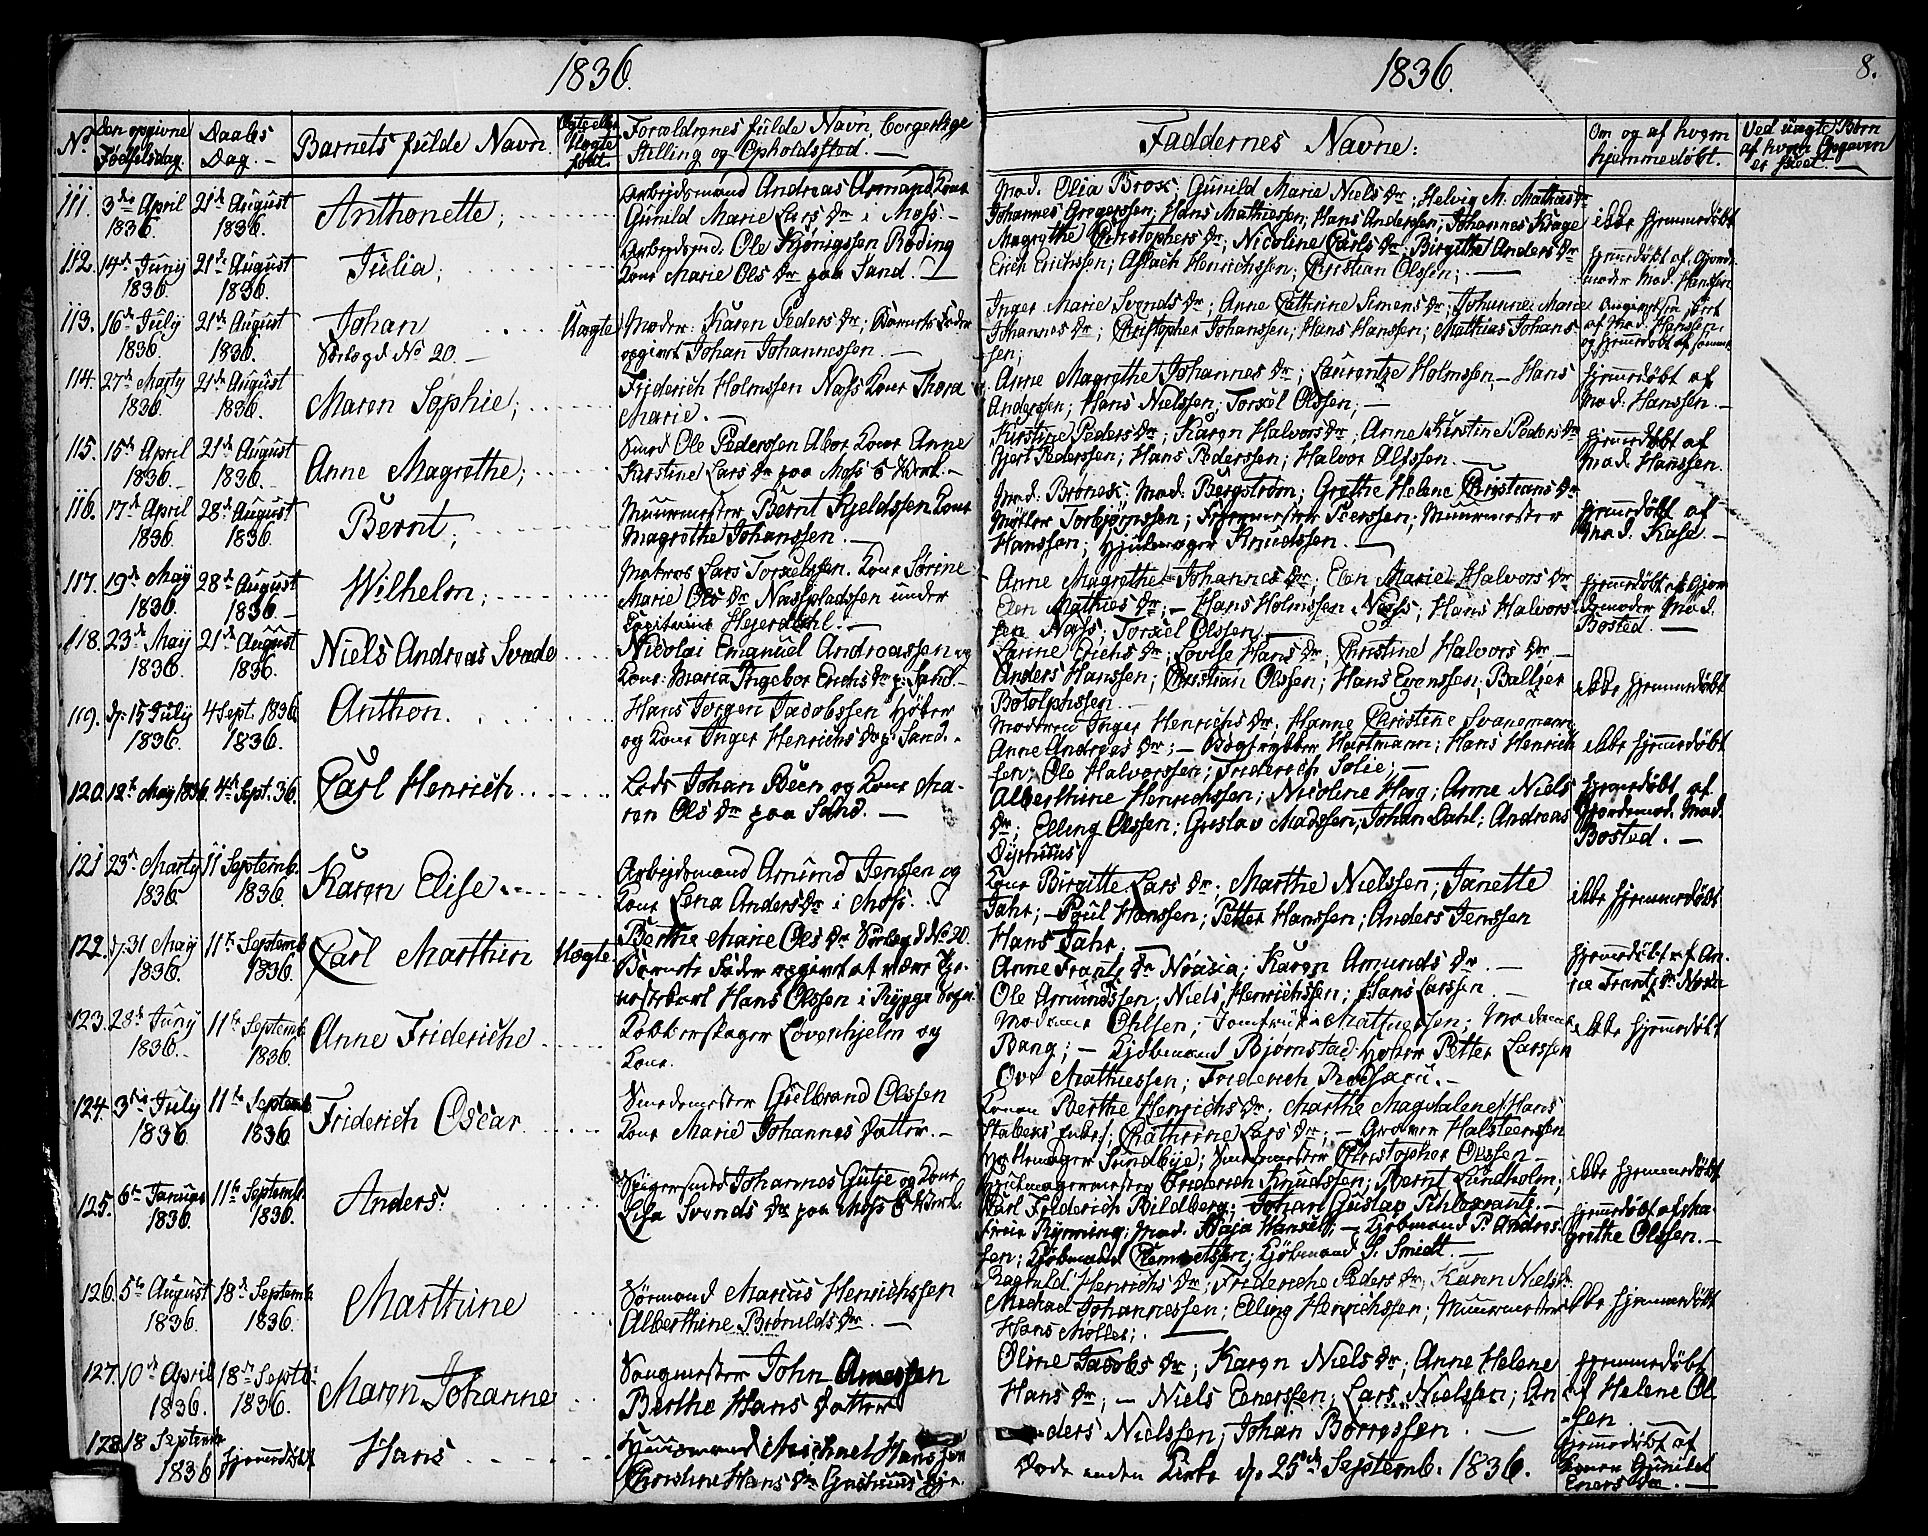 1836.
1836.
8.
No
Den opgivne Fødselsdag.
Daabs Dag.
Barnets fulde Navn.
Ægte eller Uægte født.
Forældrenes fulde Navn, borgerlige Stilling og Opholdssted.
Faddernes Navne:
Om og af hvem hjemmedøbt.
Ved uægte Børn af hvem Opgaven er skeet.
111. 3die April 1836. 21de August 1836. Anthonette;
Arbeidsmand Andreas Amund Kone
Gunild Marie Lars Dr i Moss.
Mad. Olia Brox; Gunild Marie Niels Dr; Helvig M. Mathias Dr
Johannes Gregerssen, Hans Mathiessen; Hans Anderssen; Johannes Krage
ikke hjemmedøbt
112. 14de Juny 1836. 21de August 1836. Julia;
Arbeidsmd. Ole Kjönigssen Röding
Kone Marie Ols Dr paa Sand.
Magrethe Christophers Dr; Nicoline Carls Dr; Birgithe Anders Dr
Erich Erichssen; Aslach Henrichssen; Christian Olssen;
hjemmedøbt af Gjordemoder Mad. Hanssen
113. 16de July 1836. 21de August 1836. Johan
Sørlagd No 20.
Uægte
Moder: Karen Peders Dr; Barnets Fader
opgivet Johan Johannessen.
Inger Marie Svends Dr; Anne Cathrine Simens Dr; Johanne Marie
Johannes Dr; Christopher Johanssen; Hans Hanssen; Mathias Johanssen;
af Mad. Hanssen
og hjemmedøbt af samme
114. 27de Marty 1836. 21de August 1836. Maren Sophie;
Friderich Holmssen Næss Kone Thora
Marie.
Anne Magrethe Johannes Dr; Laurentze Holmssen, Hans
Anderssen; Hans Nielssen; Torkel Olssen;
hjemmedøbt af Mad. Hanssen.
115. 15de April 1836. 21de August 1836. Anne Magrethe;
Smed Ole Pederssen Kone Anne
Kirstine Lars Dr paa Moss Værk.
Kirstine Peders Dr; Karen Halvors Dr; Anne Kirstine Peders Dr
Gjert Pederssen; Hans Pederssen; Halvor Olssen.
hjemmedøbt af Mad. Hanssen.
116. 17de April 1836. 28de August 1836. Bernt;
Muurmester Bernt Kjeldssen Kone
Magrethe Johanssen.
Mad. Mad. Bergström; Grethe Helene Christians Dr
Møller Torbjörnssen; Peerssen; Muurmester
Hanssen; Hjulmager Knudssen.
hjemmedøbt af Mad. Kase
117. 19de May 1836. 28de August 1836. Wilhelm;
Matros Lars Torkelssen. Kone Sørine
Marie Ols Dr Næsspladssen under
Capitaine Hejerdahl.
Anne Magrethe Johannes Dr; Elen Marie Halvors Dr
Elen Mathies Dr; Hans Holmssen Næss; Hans Halvorssen
Næss; Torkel Olssen
hjemmedøbt af Gjordemoder Mad. Bosted.
118. 23de May 1836. 21de August 1836. Niels Andreas Svende
Nicolai Emanuel Andreassen og
Kone: Maria Ingebor Erichs Dr p. Sand
Erichs Dr; Lovise Hans Dr; Christine Halvors Dr;
Anders Hanssen; Christian Olssen; Hans Evenssen; Baltzer
Botolphssen.
ikke hjemmedøbt
119. d. 15 July 1836. 4 Sept. 1836. Anthon.
Hans Jørgen Jacobssen Høker
og Kone Inger Henrichs Dr p. Sand.
Moderen Inger Henrichs Dr; Hanne Christine Svanemann;
Anne Andreas Dr; Bogtrykker Hartmann; Hans Henrichssen;
Ole Halvorssen; Friderich Solie;
ikke hjemmedøbt
120. 12te May 1836. 4de Sept. 36. Carl Henrich
Lods Johan Been og Kone Maren
Ols Dr paa Sand.
Alberthine Henrichssen; Nicoline Høg; Anne Niels
Dr; Elling Olssen; Gustav Madssen; Johan Dahl; Andreas
hjemmedøbt af Gjordemod. Mad. Bosted.
121 23de Marty 1836. 11 Septemb. 1836. Karen Elise
Arbejdsmand Amund Jenssen og
Kone Lena Anders Dr i Moss.
Kone Birgitte Lars Dr; Marthe Nielssen; Janette
Jahr; Poul Hanssen; Petter Hanssen; Anders Jenssen
Hans Jahr.
ikke hjemmedøbt
122. d. 31 May 1836. 11te Septemb 1836. Carl Marthin
Uægte
Berthe Marie Ols Dr Sørlagd No 20.
Barnets Fader opgivet at være
Hans Olssen i Rygge Sogn.
Anne Frantz Dr Noasia; Karen Amunds Dr
Ole Amundssen; Niels Henrichssen; Hans Larssen
hjemmedøbt af Anne Frantz Dr
123. 28de Juny 1836. 11te Septemb 1836. Anne Frideriche
Kobberslager Løvenhjelm og
Kone.
Madame Ohlsen; Jomfru Mathiessen; Madame
Bang; Kjøbmand Bjørnstad; Petter Larssen
Ove Mathiessen; Friderich
ikke hjemmedøbt
124. 3die July 1836. 11te Septemb 1836. Friderich Oscar
Smedemester Gulbrand Olssen
Kone Marie Johannes Datter.
Konen Berthe Henrichs Dr; Marthe Magdalene Hans
Cathrine Lars Dr; Halsteenssen
Sundbye; Smedemester Christopher Olssen
ikke hjemmedøbt
125. 6te Januar 1836. 11te Septemb. 1836. Anders.
Spigersmed Johannes Gutje og Kone
Lisa Svends Dr paa Moss Værk.
Hjulmagermester Friderich Knudssen; Bernt Lundholm;
Carl Friderich Bildberg; Johan Gustav
Rynning; Mad. Maja Hansen; Kjøbmand P. Andreassen;
Kjøbmand Clemmetsen; Kjøbmand S. Smidt.
hjemmedøbt af Magrethe Olssen.
126. 5te August 1836. 18de Septemb 1836. Marthine
Sømand Marcus Henrichssen
Alberthine Brønilds Dr.
Ragnild Henrichs Dr; Frideriche Peders Dr; Karen Niels Dr
Michael Johannessen; Elling Henrichssen; Muurmester
Hans Møller;
ikke hjemmedøbt
127. 10de April 1836. 18de Septb: 1836. Maren Johanne
Saugmester John
Berthe Hans Datter
Oline Jacobs Dr; Karen Niels Dr; Anne Helene
Hans Dr; Niels Enerssen; Lars Nielssen; An
ders Nielssen; Johan Børressen.
hjemmedøbt af Helene Olssen
128 18 Septemb 1836 hjemmedøbt Hans
Huusmand Michael Hanssen
Christine Hans Dr
Døde uden Kirke d. 25de Septemb. 1836.
hjemmedøbt af Konen Gunild Eners Dr.